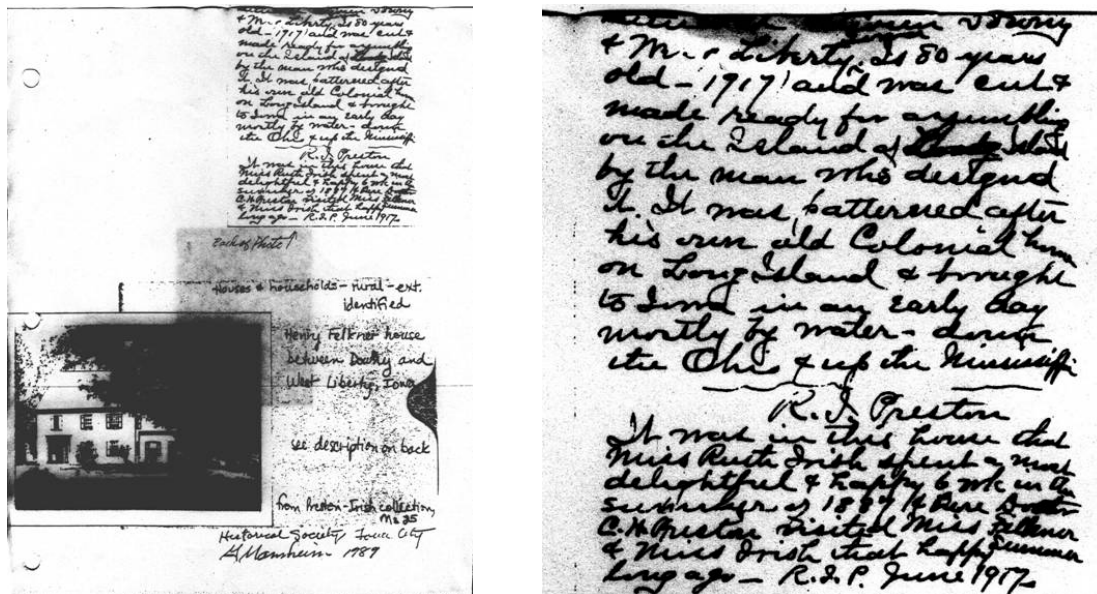 & M. & Liberty. Is 80 years
old - 1917 and was cut &
made ready for assembling
on the Island of Island
by the man who designed
it. It was patterened after
his own old Colonial home
on Long Island & brought
to Iowa in an Early day
mostly by water - down
the Ohio & up the Mississippi
R. I. Preston
It was in this house that
Miss Ruth Irish spent a most
delightful & happy 6 wk in the
summer of 1889. Here
C. H. Preston visited Miss Felkner
& Miss Irish that happy summer
long ago - R. I. P. June 1917.
Back of Photo ↑
Houses & households - rural - ext.
identified
Henry Felkner house
between Downey and
West Liberty, Iowa
see description on back
from Preston-Irish collection,
Ms 25
Historical Society Iowa City
1989
& M. & Liberty. Is 80 years
old - 1917 and was cut &
made ready for assembling
on the Island of Island
by the man who designed
it. It was patterened after
his own old Colonial home
on Long Island & brought
to Iowa in an Early day
mostly by water - down
the Ohio & up the Mississippi
R. I. Preston
It was in this house that
Miss Ruth Irish spent a most
delightful & happy 6 wk in the
summer of 1889. Here
C. H. Preston visited Miss Felkner
& Miss Irish that happy summer
long ago - R. I. P. June 1917.